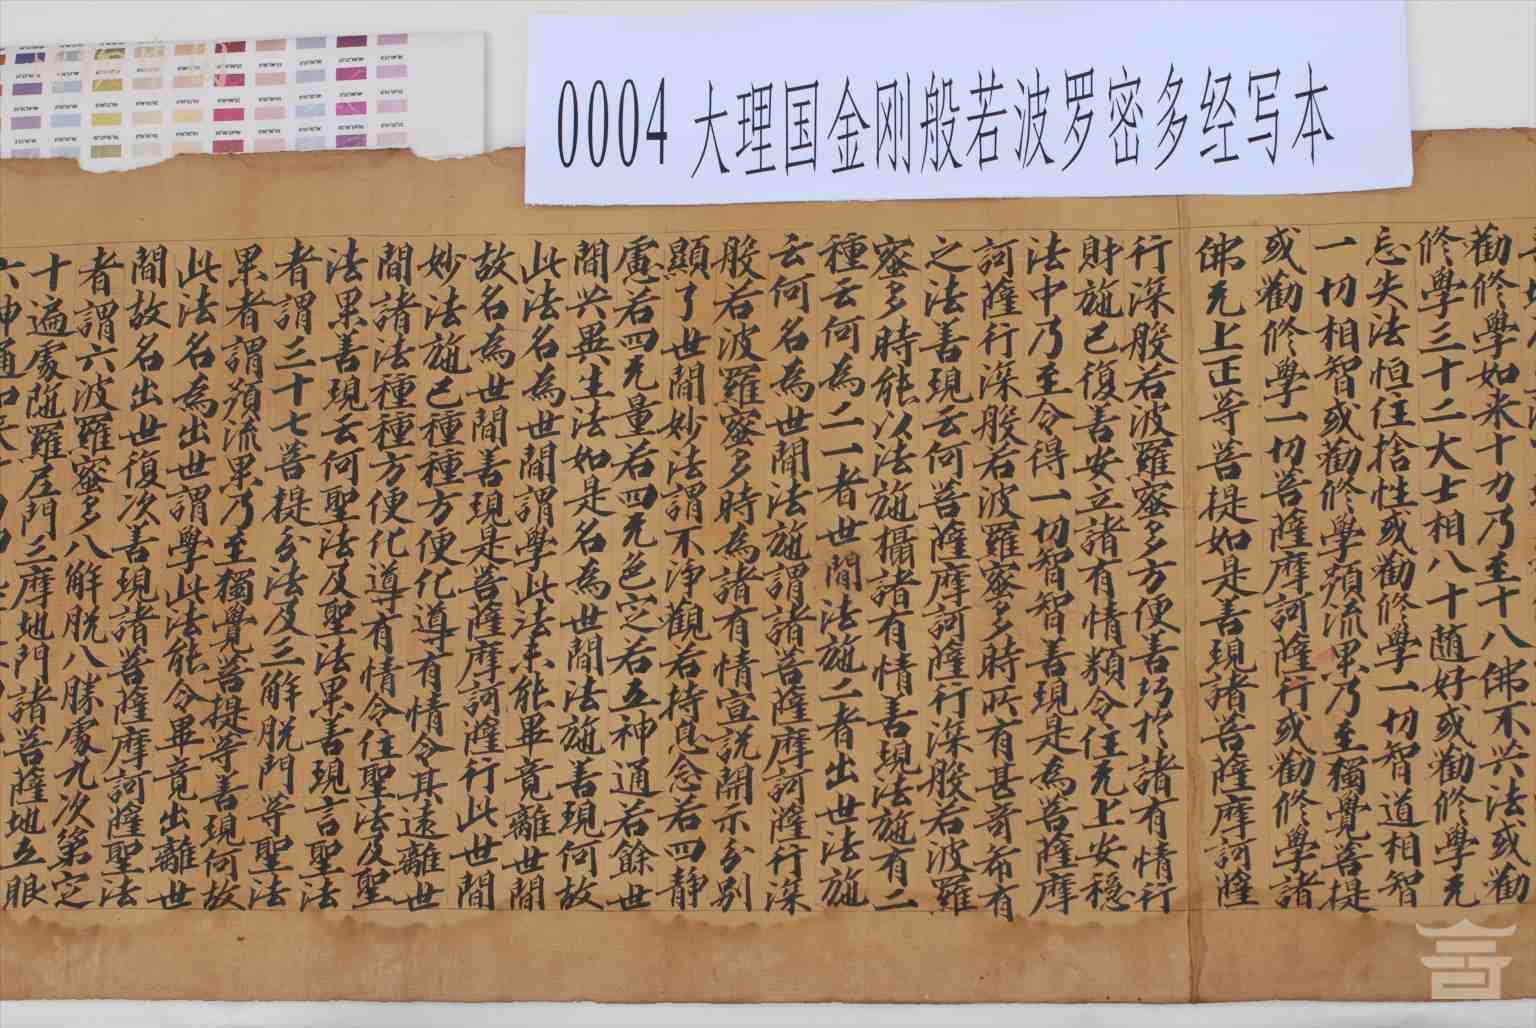 0004 大理国金刚般若波罗密多经写本
勸修學如来十力乃至十八佛不共法或勸
修學三十二大士相八十随好或勸修學无
忘失法恒住捨性或勸修學一切智道相智
一切相智或勸修學預流果乃至獨覺菩提
或勸修學一切菩薩摩訶薩行或勸修學諸
佛无上正等菩提如是善現諸菩薩摩訶薩
行深般若波羅蜜多方便善巧於諸有情行
財施已復善安立諸有情類令住无上安穩
法中乃至令得一切智智善現是為菩薩摩
訶薩行深般若波羅蜜多時所有甚奇希有
之法善現云何菩薩摩訶薩行深般若波羅
蜜多時能以法施攝諸有情善現法施有二
種云何為二一者世間法施二者出世法施
云何名為世間法施謂諸菩薩摩訶薩行深
般若波羅蜜多時為諸有情宣説開示分别
顯了世間妙法謂不淨觀若持息念若四静
慮若四无量若四无色定若五神通若餘世
間共異生法如是名為世間法施善現何故
此法名為世間謂學此法未能畢竟離世間
故名為世間善現是菩薩摩訶薩行此世間
妙法施已種種方便化導有情令其遠離世
間諸法種種方便化導有情令住聖法及聖
法果善現云何聖法及聖法果善現言聖法
者謂三十七菩提分法及三解脱門等聖法
果者謂預流果乃至獨覺菩提等善現何故
此法名為出世謂學此法能令畢竟出離世
間故名出世復次善現諸菩薩摩訶薩聖法
者謂六波羅蜜多八解脱八勝處九次第定
十遍處陁羅尼門三摩地門諸菩薩地五眼
六神通如来十